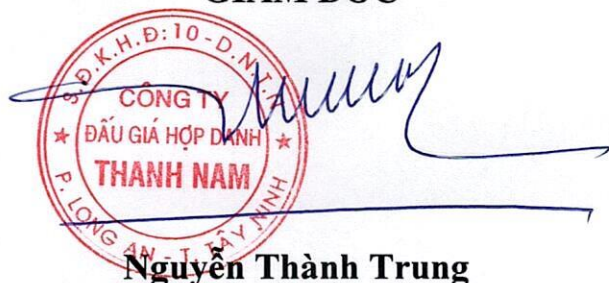 GIÁM ĐỐC
S.Đ.K.H.Đ:10-D.N.T.N
CÔNG TY
ĐẤU GIÁ HỢP DANH
THANH NAM
P. LONG AN - T. TÂY NINH
Nguyễn Thành Trung